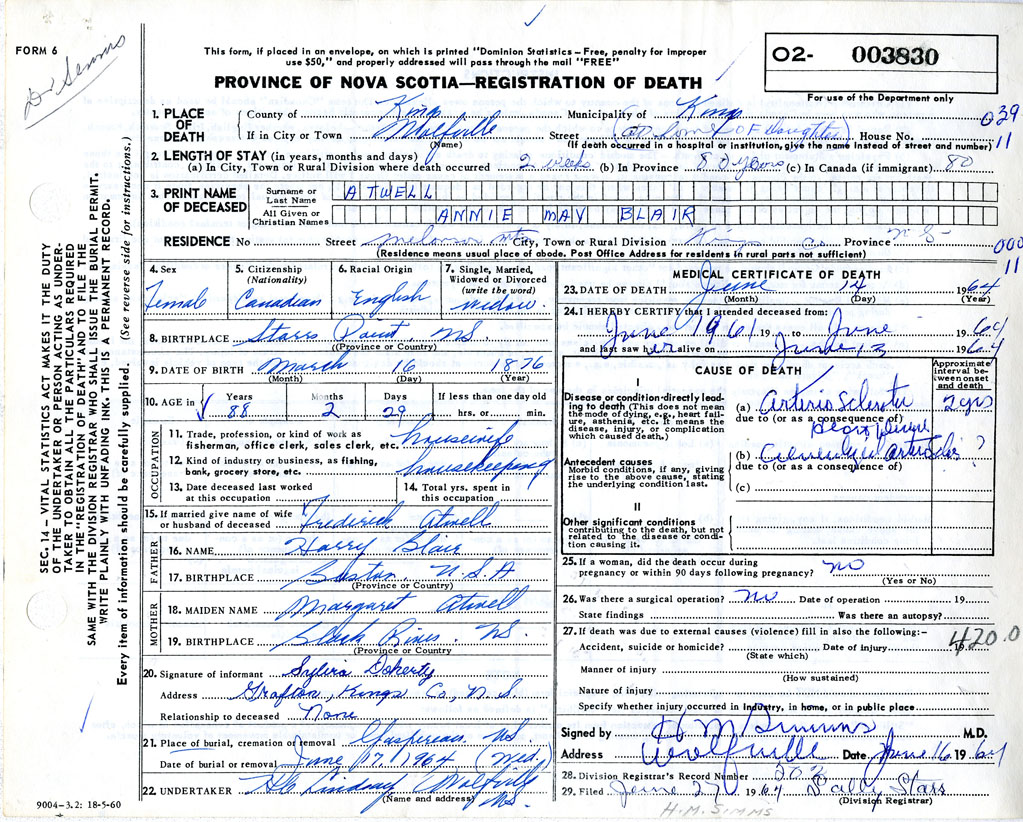 FORM 6
Dr Simms
This form, if placed in an envelope, on which is printed "Dominion Statistics – Free, penalty for improper
use $50," and properly addressed will pass through the mail "FREE"
PROVINCE OF NOVA SCOTIA—REGISTRATION OF DEATH
O2- 003830
For use of the Department only
039
11
1. PLACE OF DEATH
County of Kings Municipality of Kings
If in City or Town Wolfville Street (at home of Daughter) House No.
(Name) (If death occurred in a hospital or institution, give the name instead of street and number)
2. LENGTH OF STAY (in years, months and days)
(a) In City, Town or Rural Division where death occurred 2 weeks (b) In Province 80 years (c) In Canada (if immigrant) 80
3. PRINT NAME OF DECEASED
Surname or Last Name ATWELL
All Given or Christian Names ANNIE MAY BLAIR
RESIDENCE No Street Melanson Mtn City, Town or Rural Division Kings Co Province N S
(Residence means usual place of abode. Post Office Address for residents in rural parts not sufficient)
000
11
4. Sex Female
5. Citizenship (Nationality) Canadian
6. Racial Origin English
7. Single, Married, Widowed or Divorced (write the word) Widow
8. BIRTHPLACE Starrs Point NS
(Province or Country)
9. DATE OF BIRTH March 16 1876
(Month) (Day) (Year)
10. AGE in Years 88 Months 2 Days 29 If less than one day old hrs. or min.
OCCUPATION
11. Trade, profession, or kind of work as fisherman, office clerk, sales clerk, etc. housewife
12. Kind of industry or business, as fishing, bank, grocery store, etc. housekeeping
13. Date deceased last worked at this occupation
14. Total yrs. spent in this occupation
15. If married give name of wife or husband of deceased Frederick Atwell
FATHER
16. NAME Harry Blair
17. BIRTHPLACE Boston U.S.A
(Province or Country)
MOTHER
18. MAIDEN NAME Margaret Atwell
19. BIRTHPLACE Black River. NS.
(Province or Country
20. Signature of informant Sylvia Doherty
Address Grafton, Kings Co, N. S.
Relationship to deceased None
21. Place of burial, cremation or removal Gaspereau NS
Date of burial or removal June 17, 1964 (Wed)
22. UNDERTAKER Lindsay Wolfville NS.
(Name and address)
MEDICAL CERTIFICATE OF DEATH
23. DATE OF DEATH June 14 1964
(Month) (Day) (Year)
24. I HEREBY CERTIFY that I attended deceased from:
June 1961 19 to June 1964
and last saw her alive on June 13 1964
CAUSE OF DEATH
Approximate interval between onset and death
I
Disease or condition directly leading to death (This does not mean the mode of dying, e.g., heart failure, asthenia, etc. It means the disease, injury, or complication which caused death.)
(a) Arterio Sclerotic 2 yrs
due to (or as a consequence of)
Heart Disease
Antecedent causes
Morbid conditions, if any, giving rise to the above cause, stating the underlying condition last.
(b) ?
due to (or as a consequence of)
(c)
II
Other significant conditions contributing to the death, but not related to the disease or condition causing it.
25. If a woman, did the death occur during pregnancy or within 90 days following pregnancy? no
(Yes or No)
26. Was there a surgical operation? No Date of operation 19
State findings Was there an autopsy?
27. If death was due to external causes (violence) fill in also the following:–
Accident, suicide or homicide? Date of injury 19
(State which)
420.0
Manner of injury
(How sustained)
Nature of injury
Specify whether injury occurred in industry, in home, or in public place
Signed by H M Simms M.D.
Address Wolfville Date June 16 1964
28. Division Registrar's Record Number
29. Filed June 27 1964 Sally Starr
(Division Registrar)
H.M. SIMMS
SEC. 14 – VITAL STATISTICS ACT MAKES IT THE DUTY
OF THE UNDERTAKER OR PERSON ACTING AS UNDER-
TAKER TO OBTAIN ALL THE PARTICULARS REQUIRED
IN THE "REGISTRATION OF DEATH" AND TO FILE THE
SAME WITH THE DIVISION REGISTRAR WHO SHALL ISSUE THE BURIAL PERMIT.
WRITE PLAINLY WITH UNFADING INK. THIS IS A PERMANENT RECORD.
Every item of information should be carefully supplied. (See reverse side for instructions.)
9004–3.2: 18-5-60